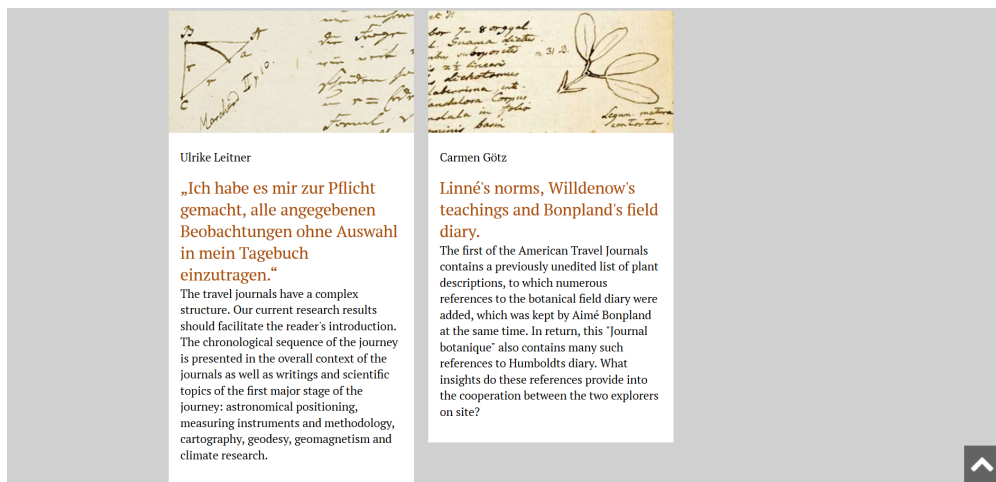 B
A
a
r
r
C
r =
et H
7-8
n 31 B.
dichotomus
in folio
Legum. matura
contorta.
Ulrike Leitner
„Ich habe es mir zur Pflicht
gemacht, alle angegebenen
Beobachtungen ohne Auswahl
in mein Tagebuch
einzutragen.“
The travel journals have a complex
structure. Our current research results
should facilitate the reader's introduction.
The chronological sequence of the journey
is presented in the overall context of the
journals as well as writings and scientific
topics of the first major stage of the
journey: astronomical positioning,
measuring instruments and methodology,
cartography, geodesy, geomagnetism and
climate research.
Carmen Götz
Linné's norms, Willdenow's
teachings and Bonpland's field
diary.
The first of the American Travel Journals
contains a previously unedited list of plant
descriptions, to which numerous
references to the botanical field diary were
added, which was kept by Aimé Bonpland
at the same time. In return, this "Journal
botanique" also contains many such
references to Humboldts diary. What
insights do these references provide into
the cooperation between the two explorers
on site?